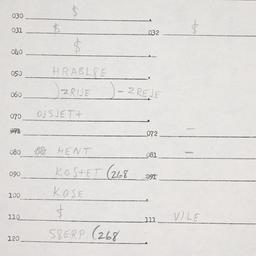 030 $
031 $ 032 $
040 $
050 HRABLSE
060 )ZRIJE )-ZREJE
070 OJSJET+
071 072 —
080 HENT 081 —
090 KOS+ET (268 091
100 KOSE
110 $ 111 VILE
120 S8ERP (268